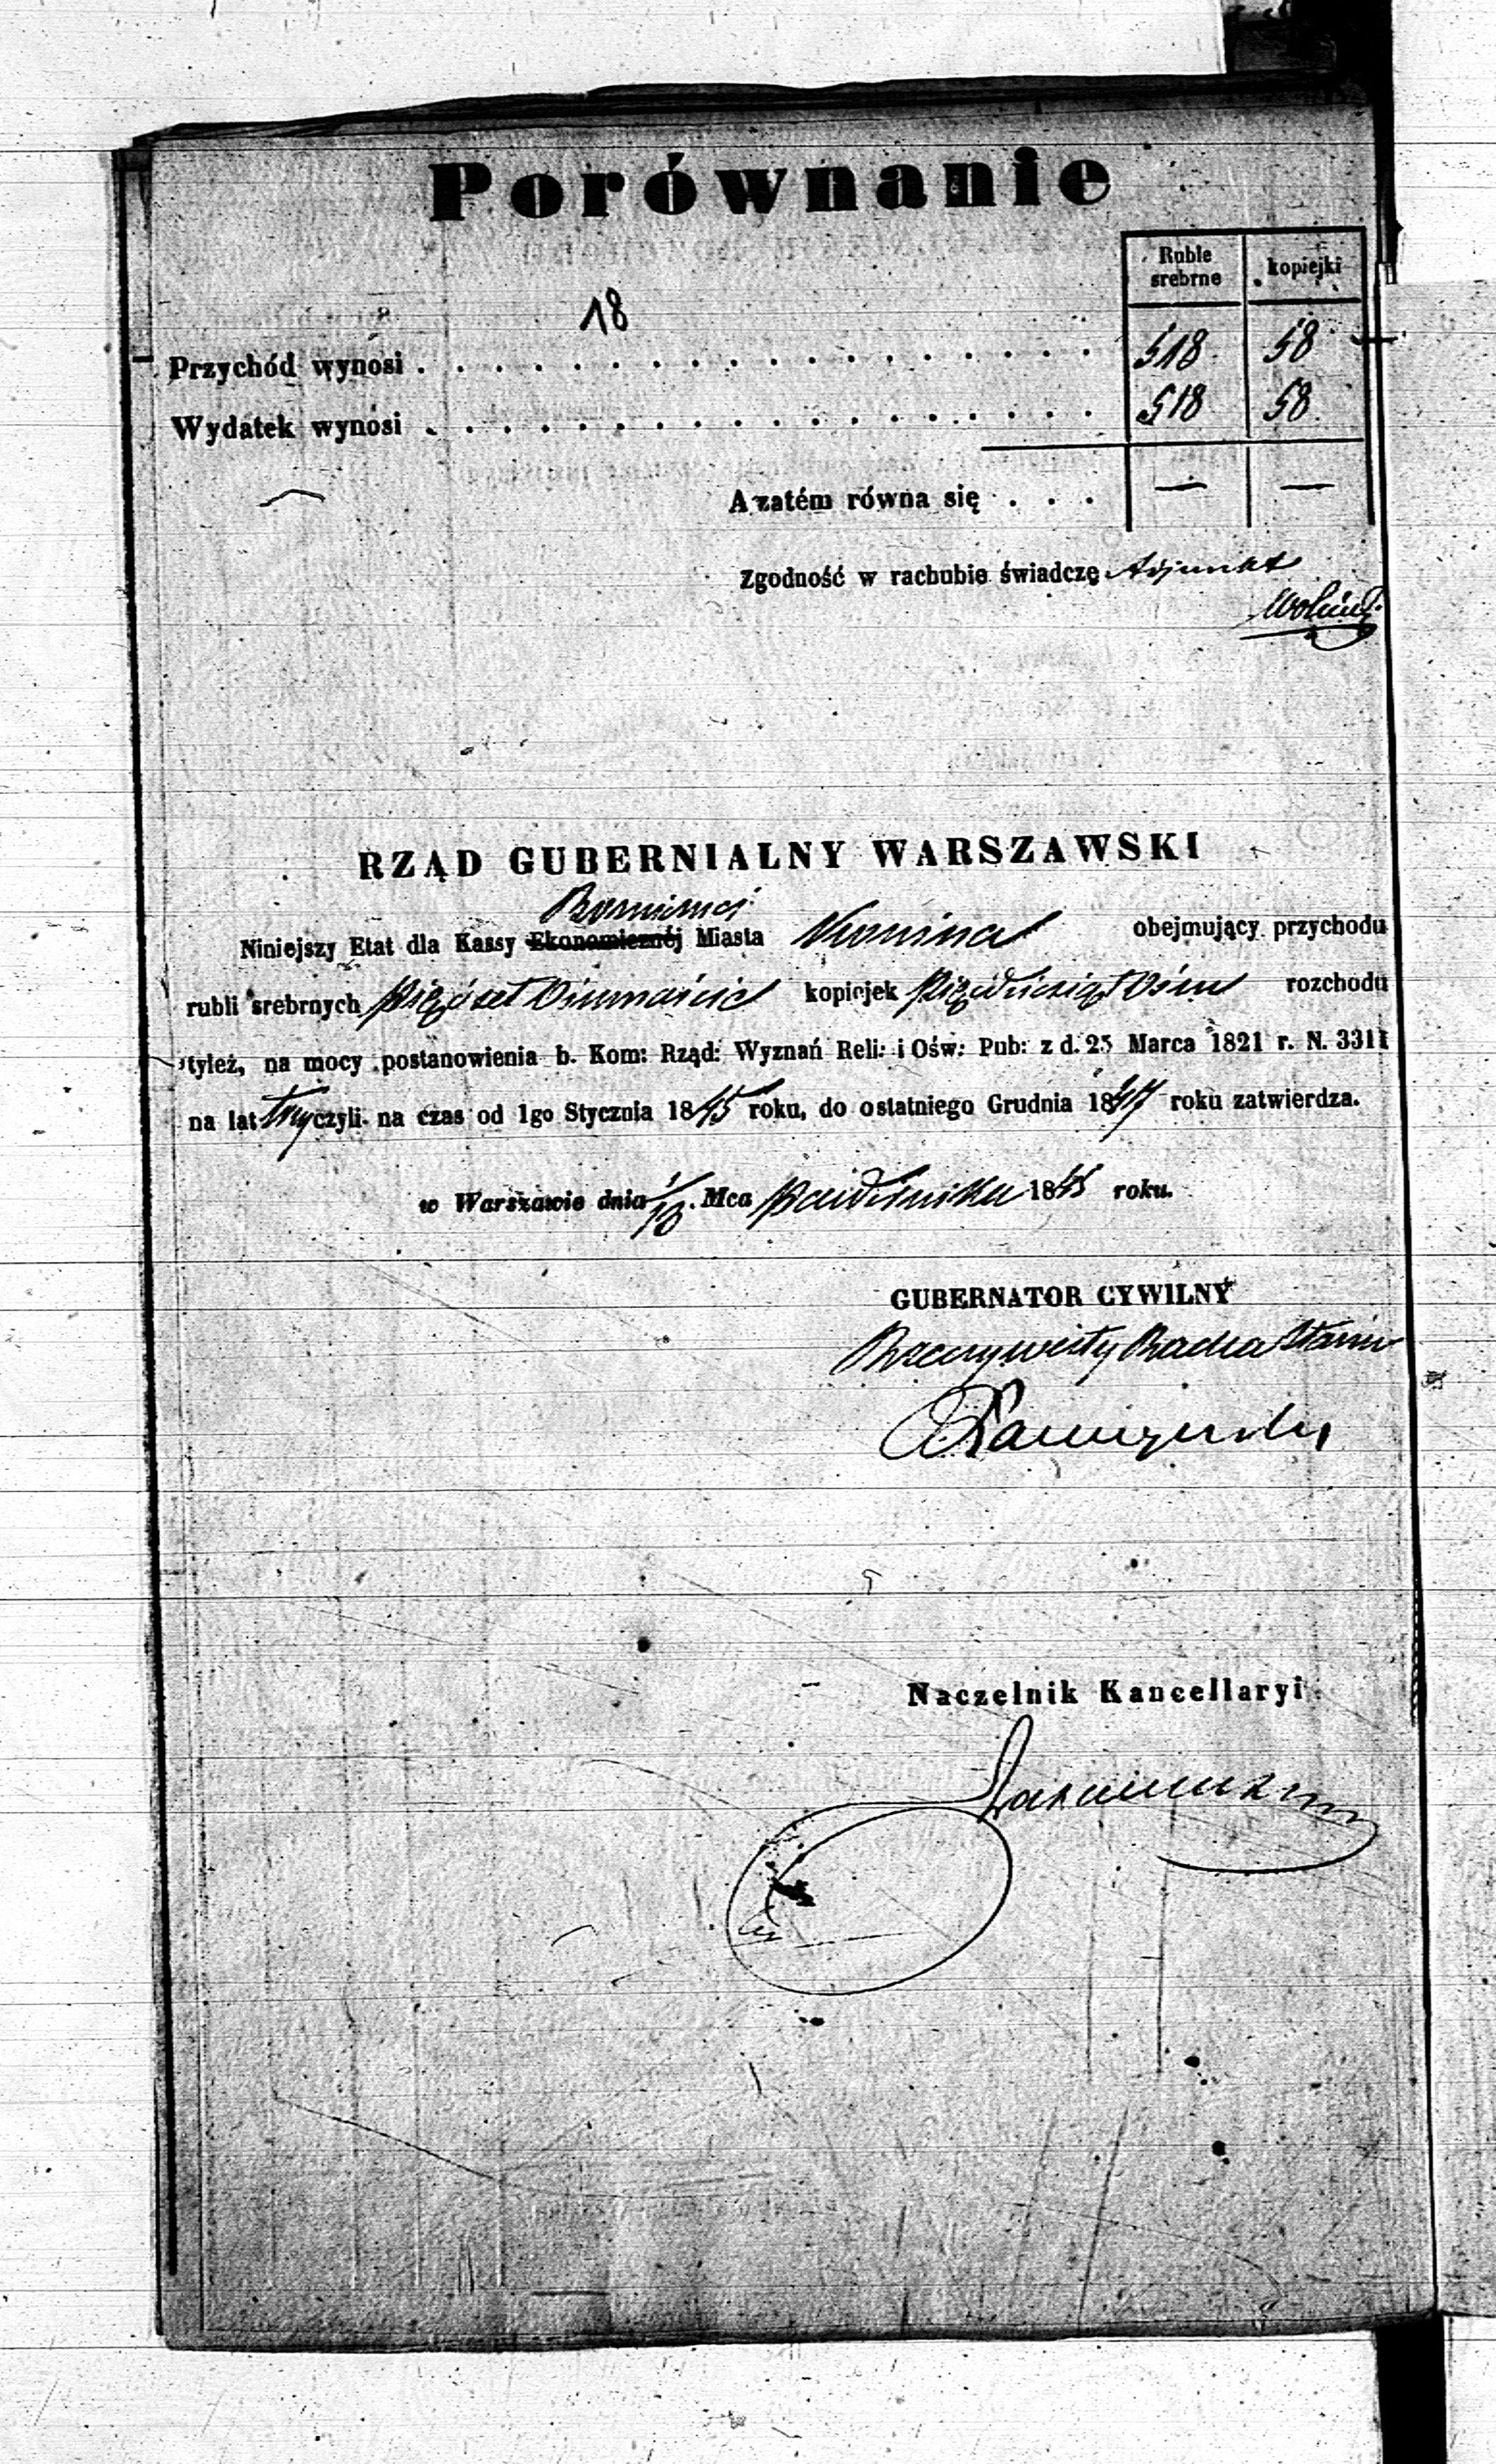 Porównanie
Ruble srebrne kopiejki
18
Przychód wynosi . . . . . . . . . . . . . . . . . . 518 58
Wydatek wynosi . . . . . . . . . . . . . . . . . . 518 58
A zatém równa się . . . — —
Zgodność w rachubie świadczę Adjunkt
RZĄD GUBERNIALNY WARSZAWSKI
Niniejszy Etat dla Kassy Ekonomicznéj Miasta Konina obejmujący przychodu
rubli srebrnych Pięćset Ośmnaście kopiejek Pięćdziesiąt Ośm rozchodu
tyleż, na mocy postanowienia b. Kom: Rząd: Wyznań Reli: i Ośw: Pub: z d. 25 Marca 1821 r. N. 3311
na lat trzy czyli na czas od 1go Stycznia 1845 roku, do ostatniego Grudnia 1847 roku zatwierdza.
w Warszawie dnia 1/13 Mca Października 1845 roku.
GUBERNATOR CYWILNY
Rzeczywisty Radca Stanu
Naczelnik Kancellaryi